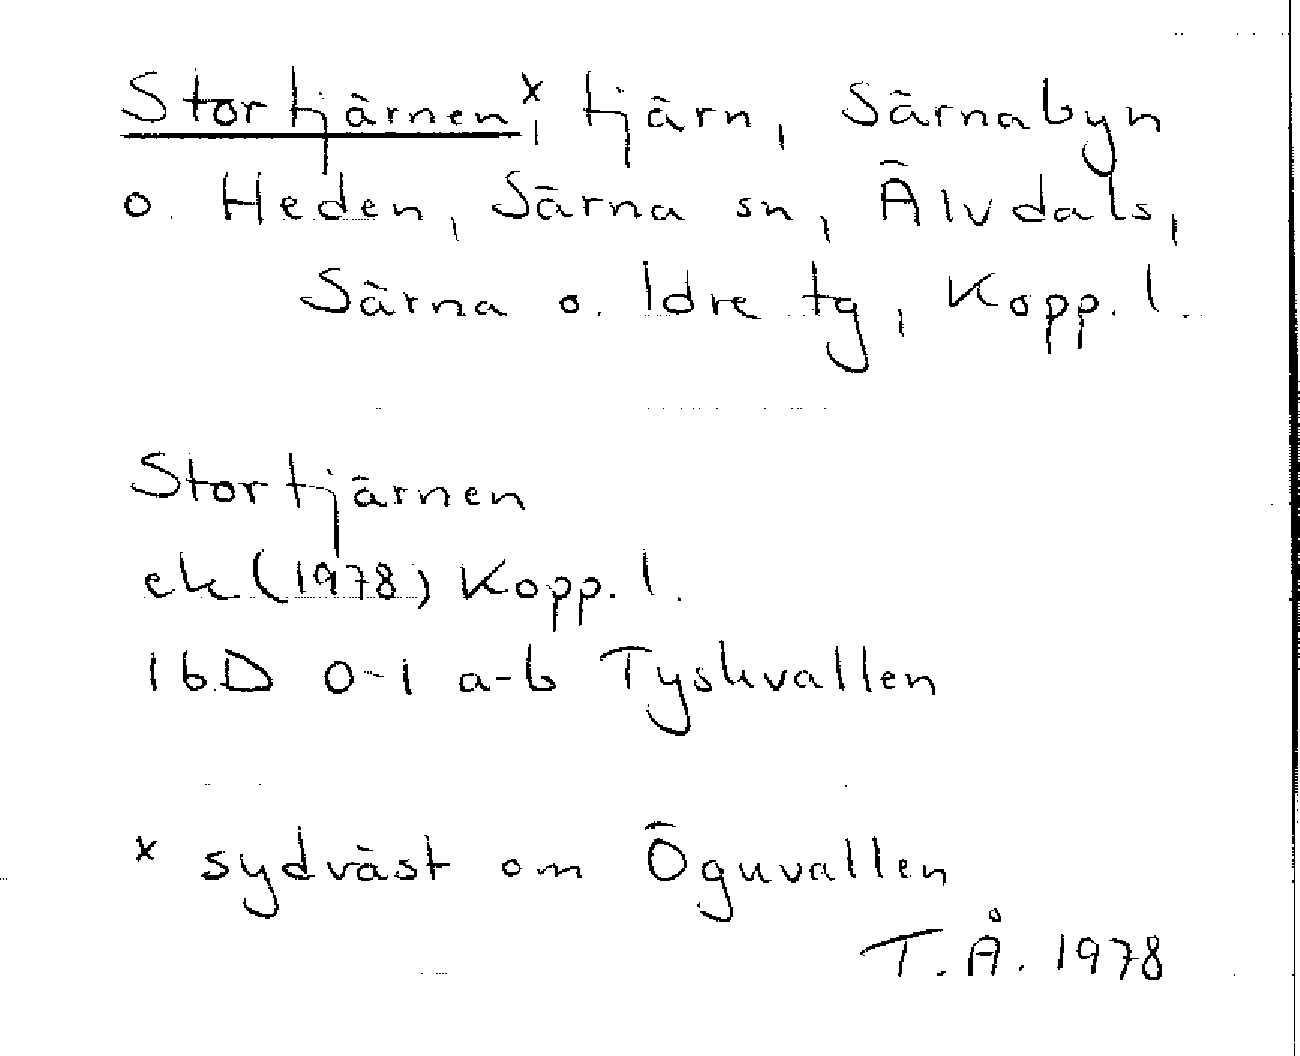 Stortjärnen,ˣ tjärn, Särnabyn
o. Heden, Särna sn, Älvdals,
Särna o. Idre tg, Kopp. l.
Stortjärnen
ek (1978) Kopp. l.
16D 0-1 a-b Tyskvallen
x sydväst om Öguvallen
T.Å. 1978